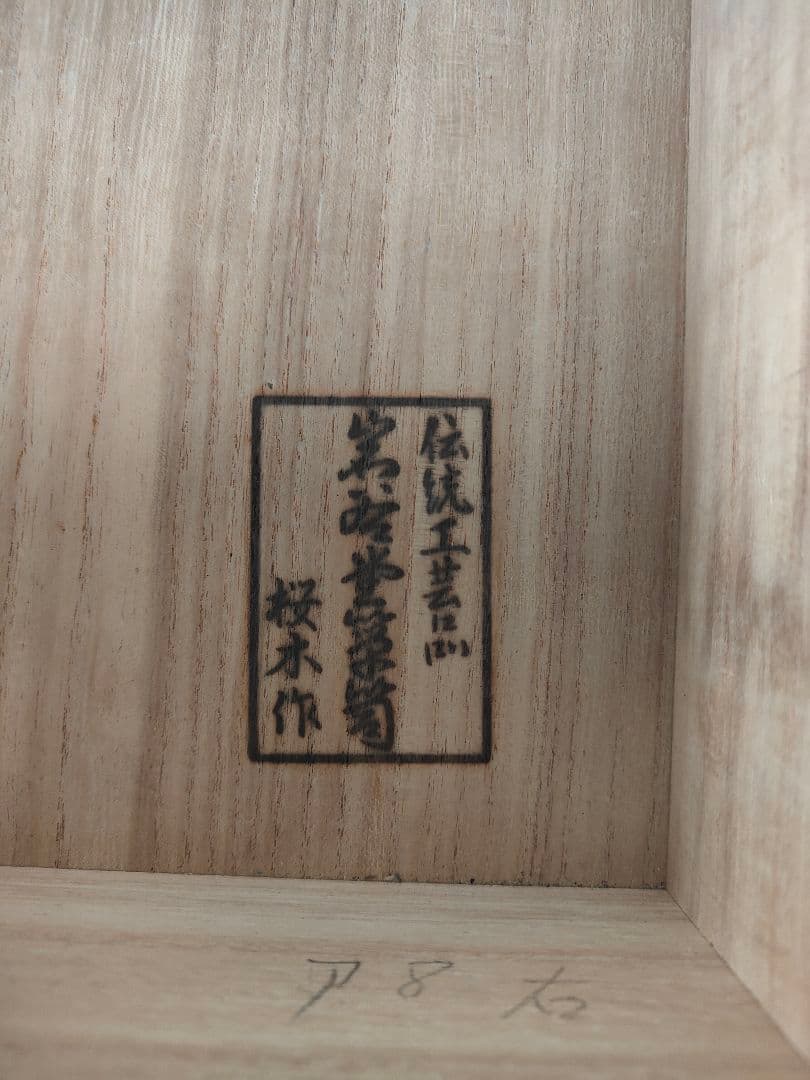 伝統工芸品
岩谷堂箪笥
桜木作
ア 8 右